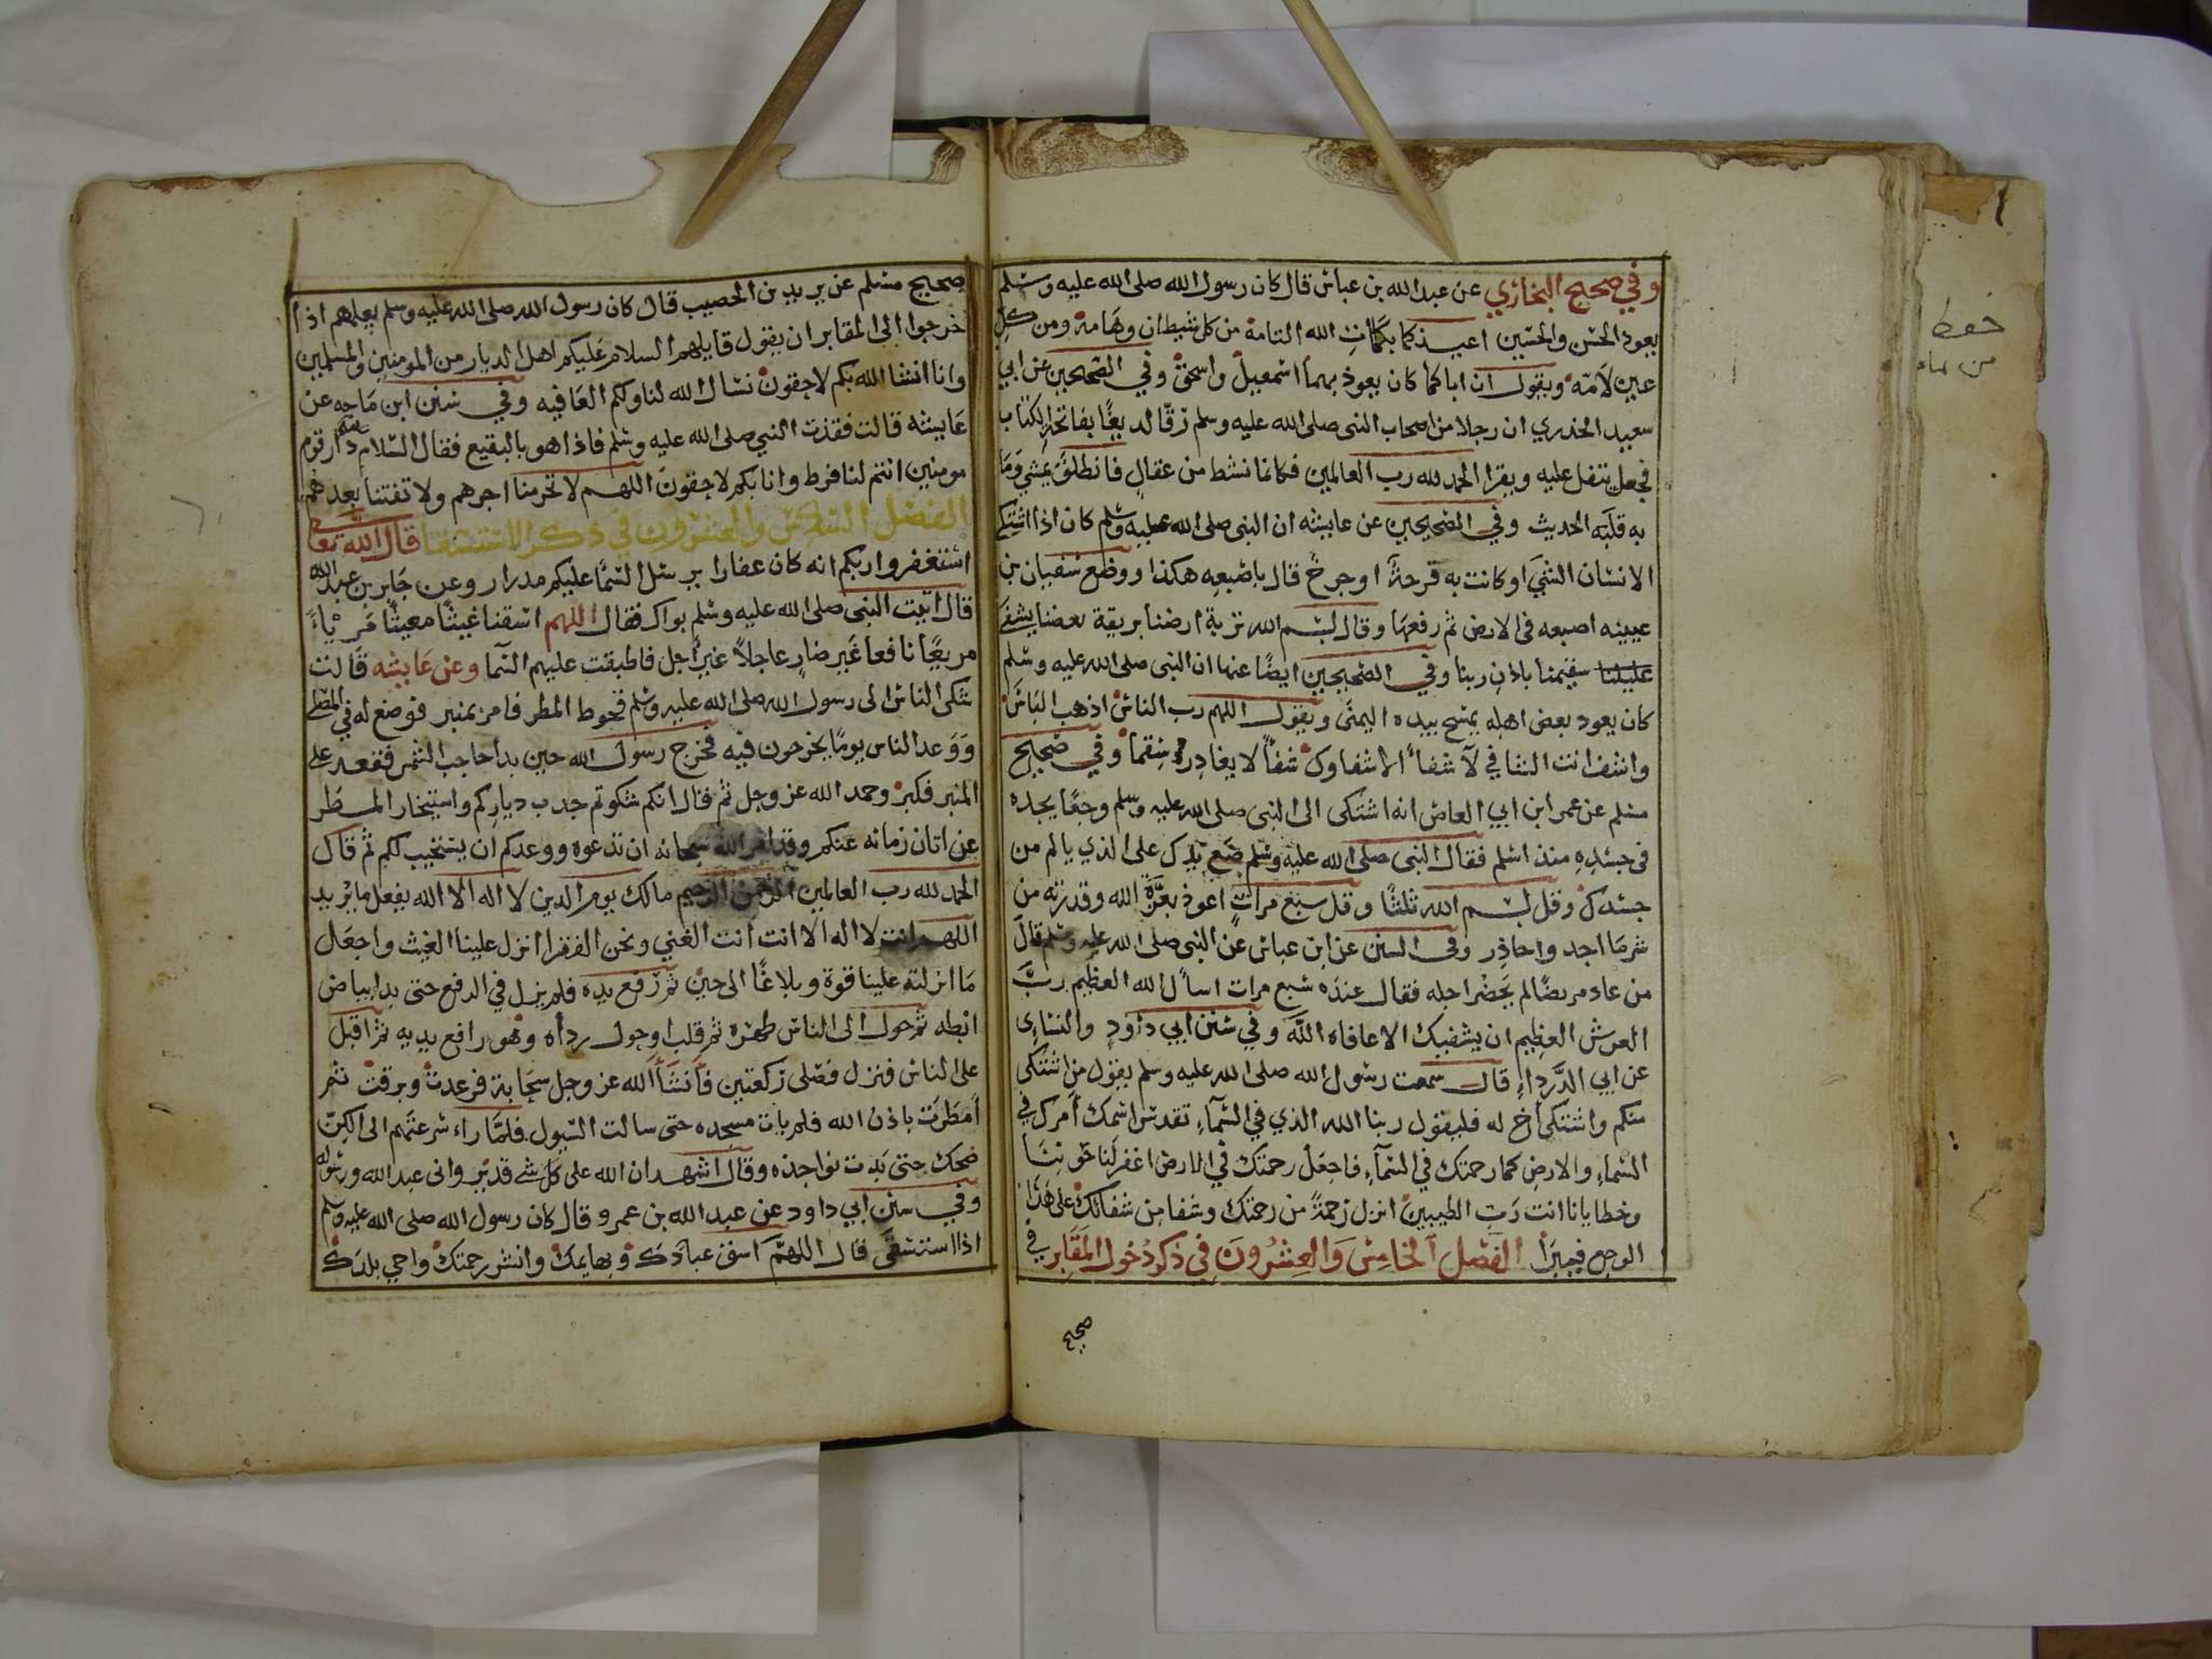 وفي صحيح البخاري عن عبد الله بن عباس قال كان رسول الله صلى الله عليه وسلم
يعوذ الحسن والحسين اعيذكما بكلمات الله التامة من كل شيطان وهامة ومن كل
عين لامه ويقول ان اباكما كان يعوذ بهما اسمعيل واسحق وفي الصحيحين عن ابي
سعيد الخدري ان رجلا من اصحاب النبي صلى الله عليه وسلم رقا لديغا بفاتحة الكتاب
فجعل يتفل عليه ويقرا الحمد لله رب العالمين فكانما نشط من عقال فانطلق يمشي وما
به قلبه الحديث وفي الصحيحين عن عايشه ان النبي صلى الله عليه وسلم كان اذا اشتكى
الانسان الشي او كانت به قرحة او جرح قال باصبعه هكذا ووضع سفيان بن
عيينه اصبعه في الارض ثم رفعها وقال بسم الله تربة ارضنا بريقة بعضنا يشفى
عليلنا سقيمنا باذن ربنا وفي الصحيحين ايضا عنها ان النبي صلى الله عليه وسلم
كان يعود بعض اهله يمسح بيده اليمنى ويقول اللهم رب الناس اذهب الباس
واشف انت الشافي لا شفاء الا شفاوك شفاً لا يغادر سقما وفي صحيح
مسلم عن عمر ابن ابي العاص انه اشتكى الى النبي صلى الله عليه وسلم وجعا يجده
في جسده منذ اسلم فقال النبي صلى الله عليه وسلم ضع يدك على الذي يالم من
جسدك وقل بسم الله ثلثا وقل سبع مرات اعوذ بعزة الله وقدرته من
شر ما اجد واحاذر وفي السنن عن ابن عباس عن النبي صلى الله عليه وسلم قال
من عاد مريضا لم يحضر اجله فقال عنده سبع مرات اسال الله العظيم رب
العرش العظيم ان يشفيك الا عافاه الله وفي سنن ابي داود والنساي
عن ابي الدرداء قال سمعت رسول الله صلى الله عليه وسلم يقول من اشتكى
منكم واشتكى اخ له فليقول ربنا الله الذي في السماء تقدس اسمك امرك في
السماء والارض كما رحمتك في السماء فاجعل رحمتك في الارض اغفر لنا حوبنا
وخطايانا انت رب الطيبين انزل رحمة من رحمتك وشفا من شفائك على هذا
الوجع فيبرا الفصل الخامس والعشرون في ذكر دخول المقابر في
صحيح
صحيح مسلم عن بريد بن الحصيب قال كان رسول الله صلى الله عليه وسلم يعلمهم اذا
خرجوا الى المقابر ان يقول قايلهم السلام عليكم اهل الديار من المومنين والمسلمين
وانا انشا الله بكم لاحقون نسال الله لنا ولكم العافيه وفي سنن ابن ماجه عن
عايشه قالت فقدت النبي صلى الله عليه وسلم فاذا هو بالبقيع فقال السلام دار قوم
مومنين انتم لنا فرط وانا بكم لاحقون اللهم لا تحرمنا اجرهم ولا تفتنا بعدهم
الفصل السادس والعشرون في ذكر الاستسقا قال الله تعا
استغفروا ربكم انه كان غفارا يرسل السما عليكم مدرار وعن جابر بن عبد الله
قال اتيت النبي صلى الله عليه وسلم بواك فقال اللهم اسقنا غيثا مغيثا مرياً
مريعا نافعا غير ضار عاجلا غير اجل فاطبقت عليهم السما وعن عايشه قالت
شكى الناس الى رسول الله صلى الله عليه وسلم قحوط المطر فامر بمنبر فوضع له في المصلى
ووعد الناس يوما يخرجون فيه فخرج رسول الله حين بدا حاجب الشمس فقعد على
المنبر فكبر وحمد الله عز وجل ثم قال انكم شكوتم جدب دياركم واستيخار المطر
عن اتان زمانه عنكم وقد امر الله سبحانه ان تدعوه ووعدكم ان يستجيب لكم ثم قال
الحمد لله رب العالمين الرحمن الرحيم مالك يوم الدين لا اله الا الله يفعل ما يريد
اللهم انت لا اله الا انت انت الغني ونحن الفقرا انزل علينا الغيث واجعل
ما انزلته علينا قوة وبلاغا الى حين ثم رفع يده فلم يزل في الرفع حتى بدا بياض
ابطه ثم حول الى الناس ظهره ثم قلب او حول رداه وهو رافع يديه ثم اقبل
على الناس فنزل فصلى ركعتين فانشأ الله عز وجل سحابة فرعدت وبرقت ثم
امطرت باذن الله فلم يات مسجده حتى سالت السيول فلما راء سرعتهم الى الكن
ضحك حتى بدت نواجذه وقال اشهد ان الله على كل شي قدير واني عبد الله ورسوله
وفي سنن ابي داود عن عبد الله بن عمرو قال كان رسول الله صلى الله عليه وسلم
اذا استسقى قال اللهم اسق عبادك وبهايمك وانشر رحمتك واحي بلدك